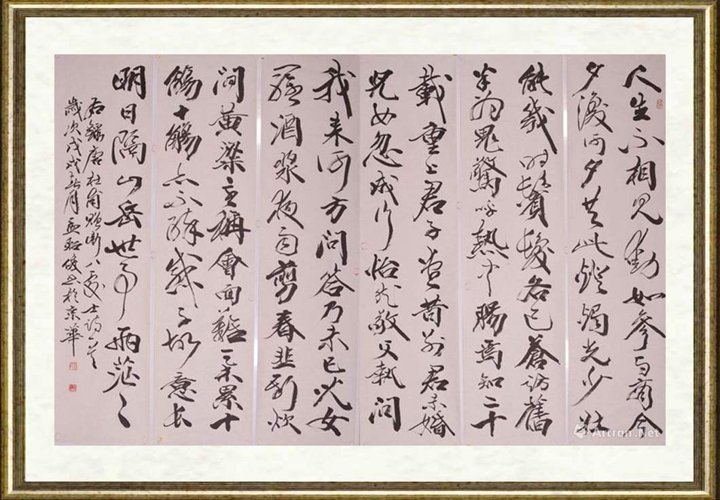 人生不相見動如參與商今
夕復何夕共此燈燭光少壯
能幾時鬢髮各已蒼訪舊
半為鬼驚呼熱中腸焉知二十
載重上君子堂昔別君未婚
兒女忽成行怡然敬父執問
我來何方問答乃未已兒女
羅酒漿夜雨剪春韭新炊
間黃粱主稱會面難一舉累十
觴十觴亦不醉感子故意長
明日隔山岳世事兩茫〻
右錄唐杜甫贈衛八處士詩一首
歲次戊戌 月 書於京華
Artron.Net